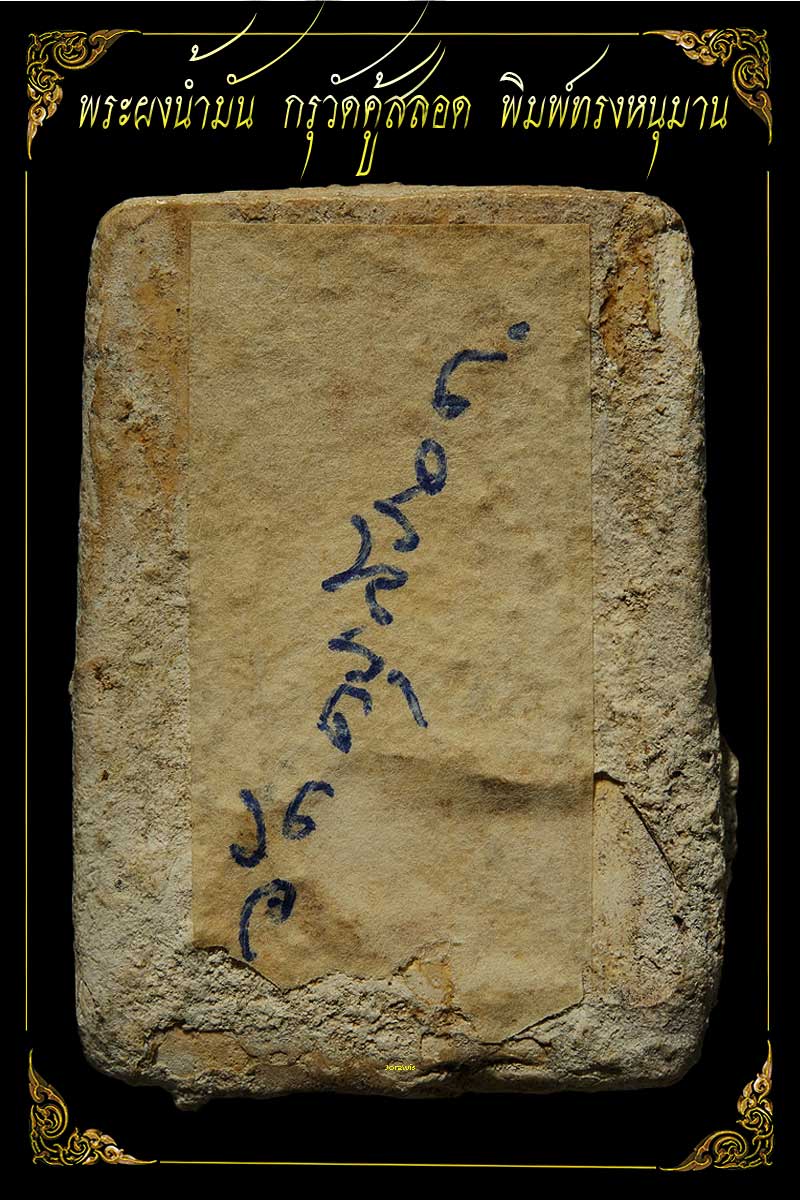 พระผงน้ำมัน กรุวัดคู้สลอด พิมพ์ทรงหนุมาน
วัดคู้สลอด
Jorawis